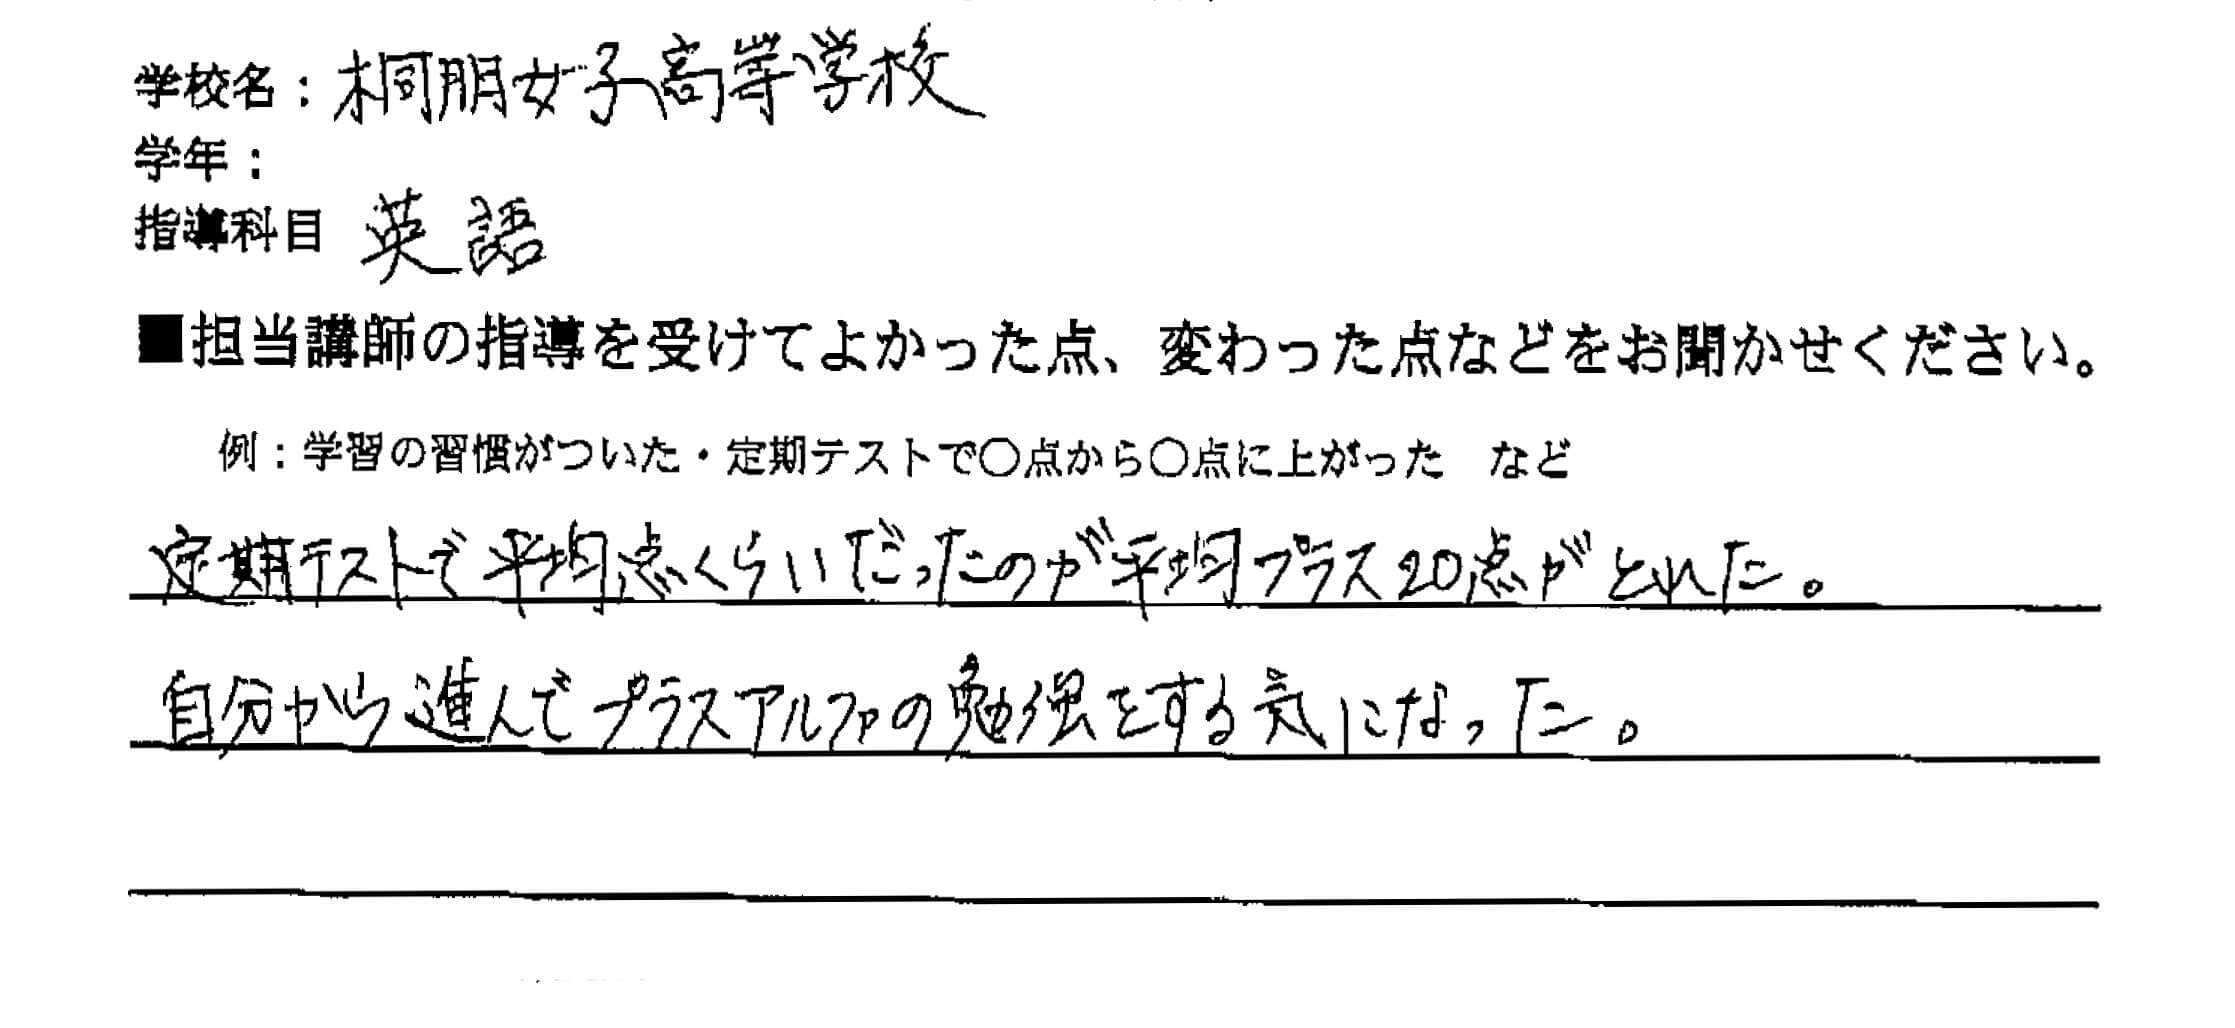 学校名：桐朋女子高等学校
学年：
指導科目 英語
■担当講師の指導を受けてよかった点、変わった点などをお聞かせください。
例：学習の習慣がついた・定期テストで〇点から〇点に上がった　など
定期テストで平均点くらいだったのが平均プラス20点がとれた。
自分から進んでプラスアルファの勉強をする気になった。